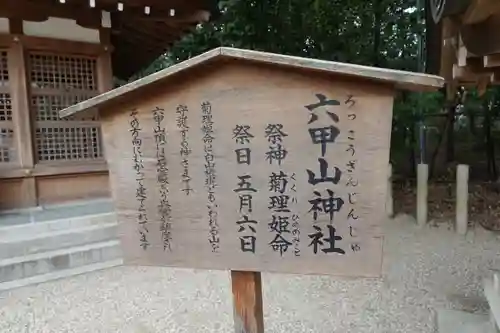 六甲山神社
ろっこうさんじんじゃ
祭神 菊理姫命
くくりひめのみこと
祭日 五月六日
菊理姫命は白山姫ともいわれる山を
守護する神さまです
六甲山頂に
この方向にむかって建てられています